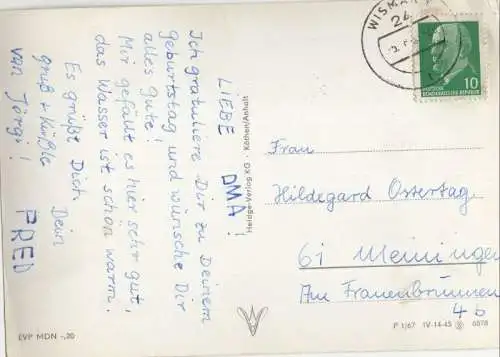 LIEBE OMA!
Ich gratuliere Dir zu Deinem
Geburtstag und wünsche Dir
alles Gute!
Mir gefällt es hier sehr gut,
das Wasser ist schon warm.
Es grüßt Dich Dein
FRED
gruß + Küßle
von Jörgi!
EVP MDN -,20
Heldge-Verlag KG · Köthen/Anhalt
WISMAR
24
DEUTSCHE
DEMOKRATISCHE REPUBLIK
10
Frau
Hildegard Ostertag
61 Meiningen
Am Frauenbrunnen
4b
P 1/67 IV-14-45 6078